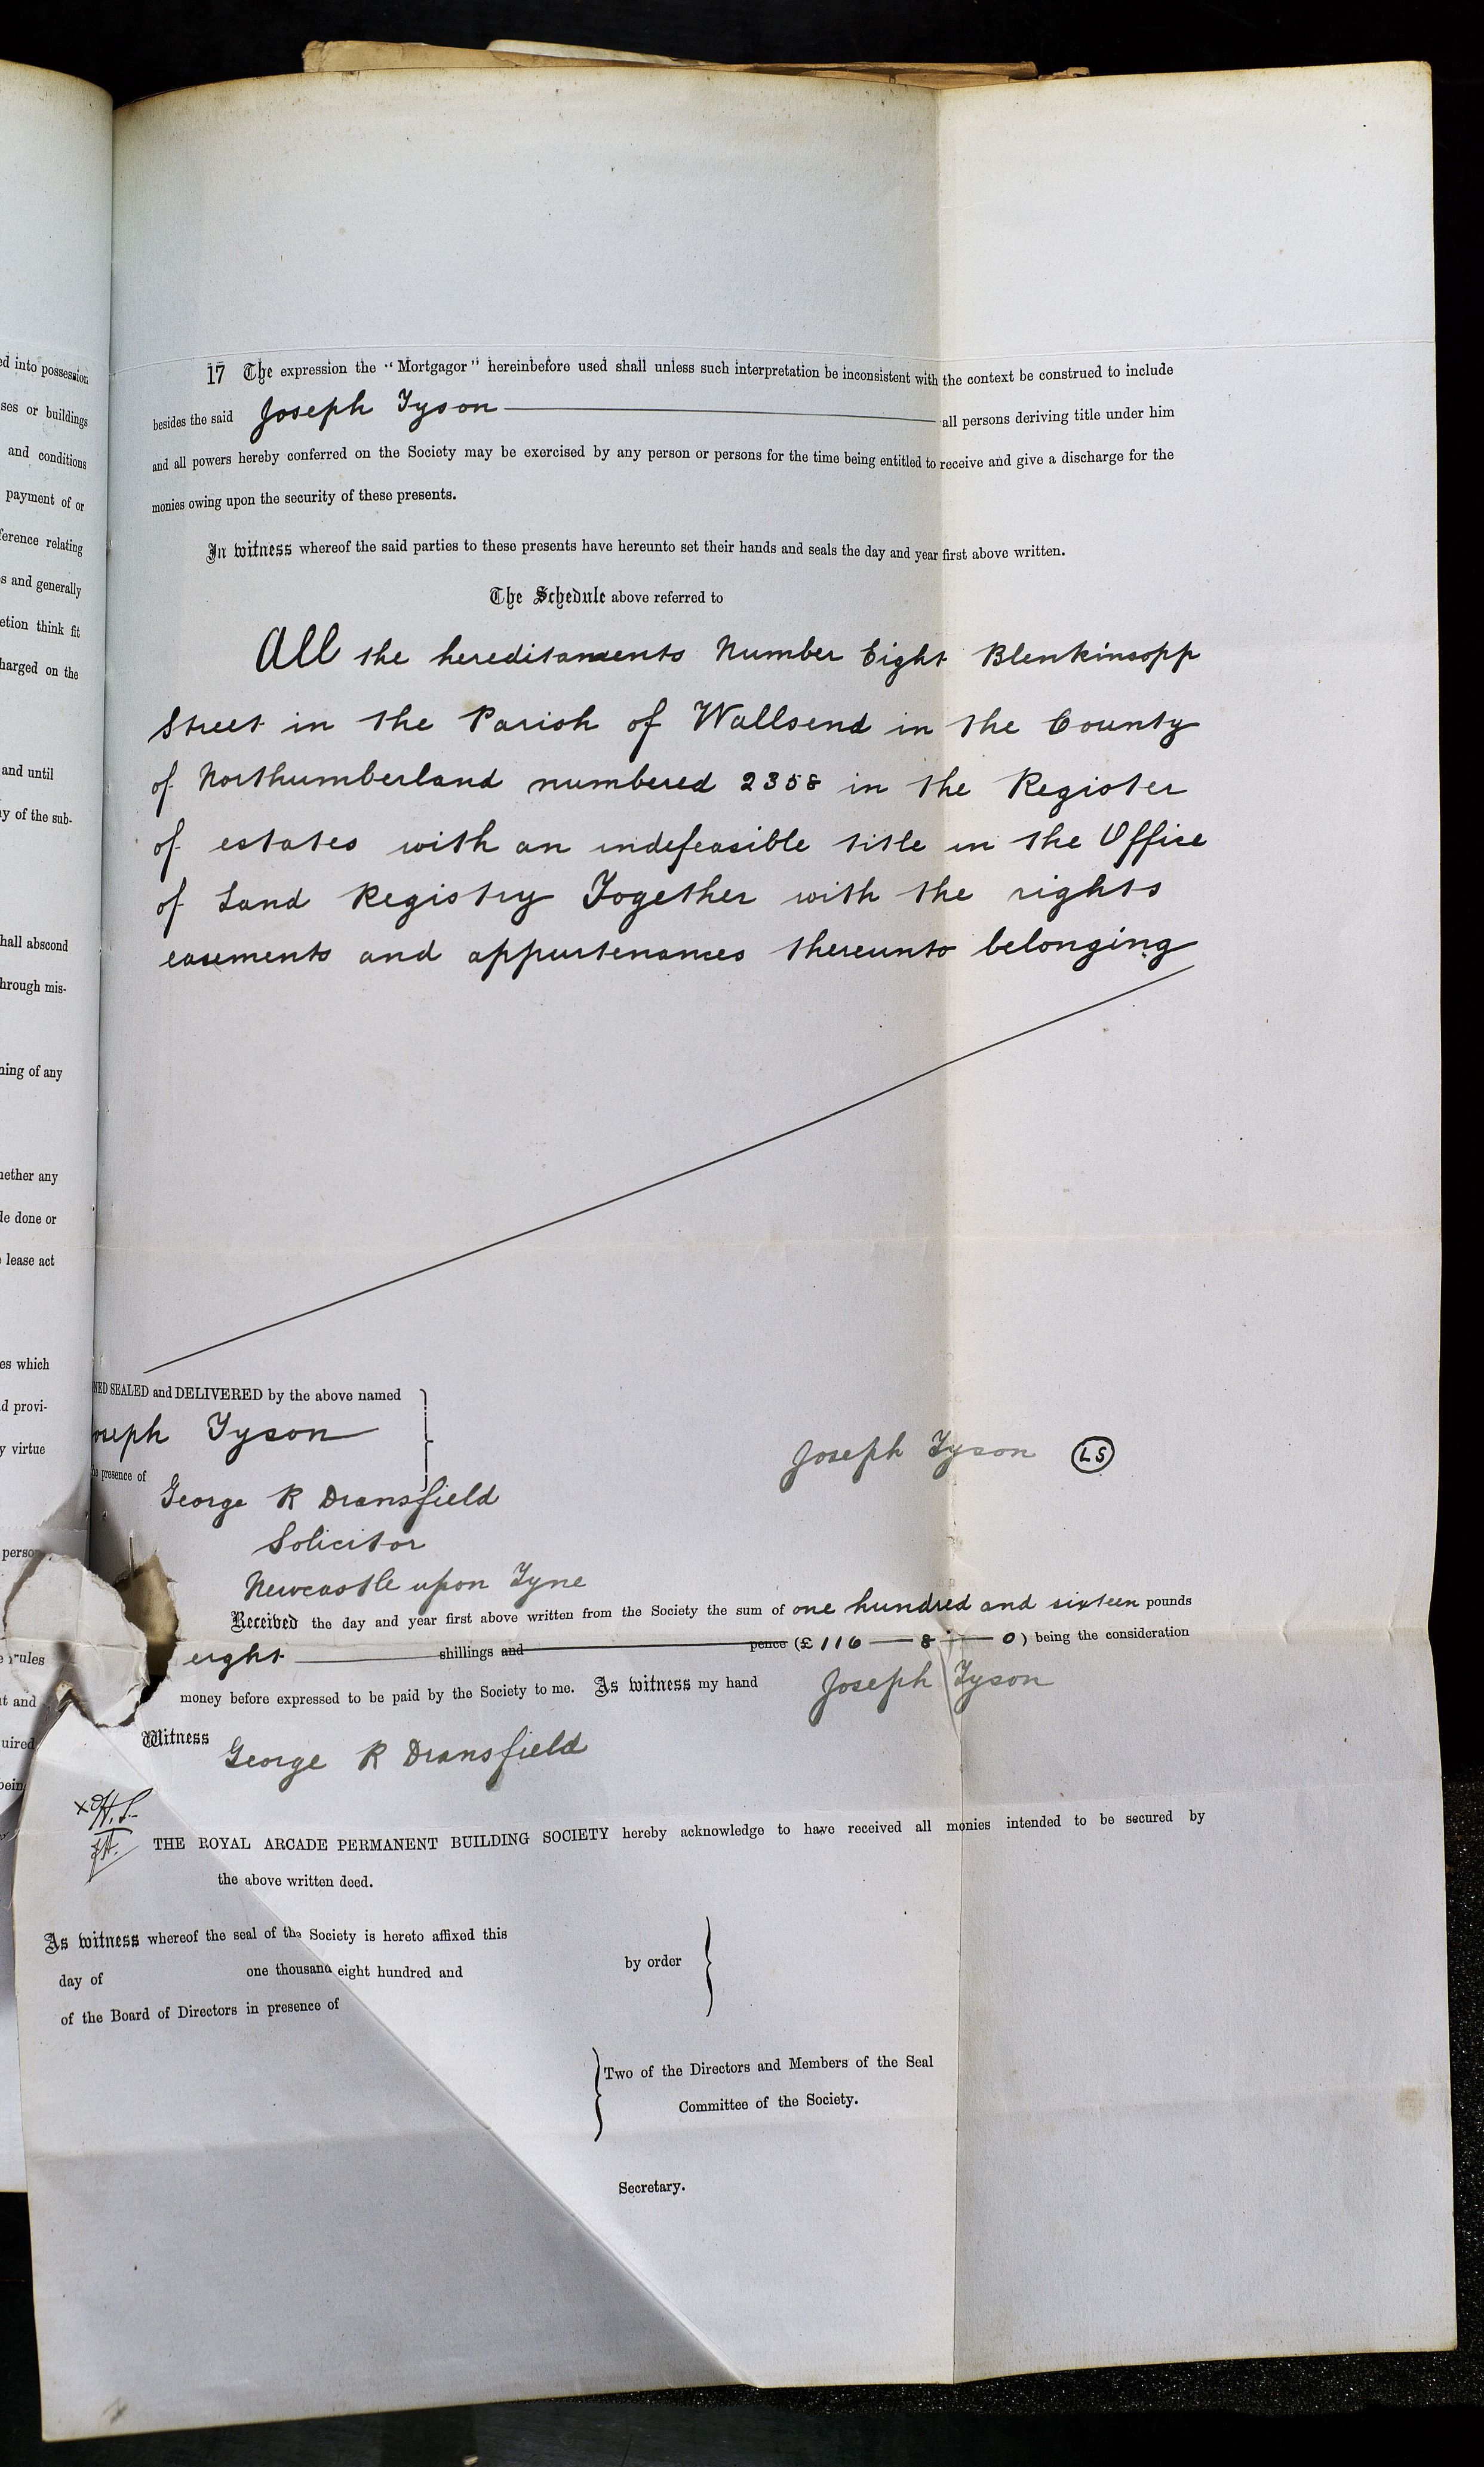 ed into possession
ses or buildings
and conditions
payment of or
ference relating
s and generally
etion think fit
harged on the
and until
y of the sub-
hall abscond
hrough mis-
ning of any
hether any
de done or
lease act
es which
d provi-
y virtue
perso
rules
t and
uired
bein
17 The expression the "Mortgagor" hereinbefore used shall unless such interpretation be inconsistent with the context be construed to include
besides the said Joseph Tyson all persons deriving title under him
and all powers hereby conferred on the Society may be exercised by any person or persons for the time being entitled to receive and give a discharge for the
monies owing upon the security of these presents.
In witness whereof the said parties to these presents have hereunto set their hands and seals the day and year first above written.
The Schedule above referred to
All the hereditaments Number Eight Blenkinsopp
Street in the Parish of Wallsend in the County
of Northumberland numbered 2358 in the Register
of estates with an indefeasible title in the Office
of Land Registry Together with the rights
easements and appurtenances thereunto belonging
NED SEALED and DELIVERED by the above named
oseph Tyson
he presence of
Joseph Tyson LS
George R Dransfield
Solicitor
Newcastle upon Tyne
Received the day and year first above written from the Society the sum of one hundred and sixteen pounds
eight shillings and pence (£116 — 8 — 0) being the consideration
money before expressed to be paid by the Society to me. As witness my hand Joseph Tyson
Witness George R Dransfield
THE ROYAL ARCADE PERMANENT BUILDING SOCIETY hereby acknowledge to have received all monies intended to be secured by
the above written deed.
As witness whereof the seal of the Society is hereto affixed this
day of one thousand eight hundred and by order
of the Board of Directors in presence of
Two of the Directors and Members of the Seal
Committee of the Society.
Secretary.